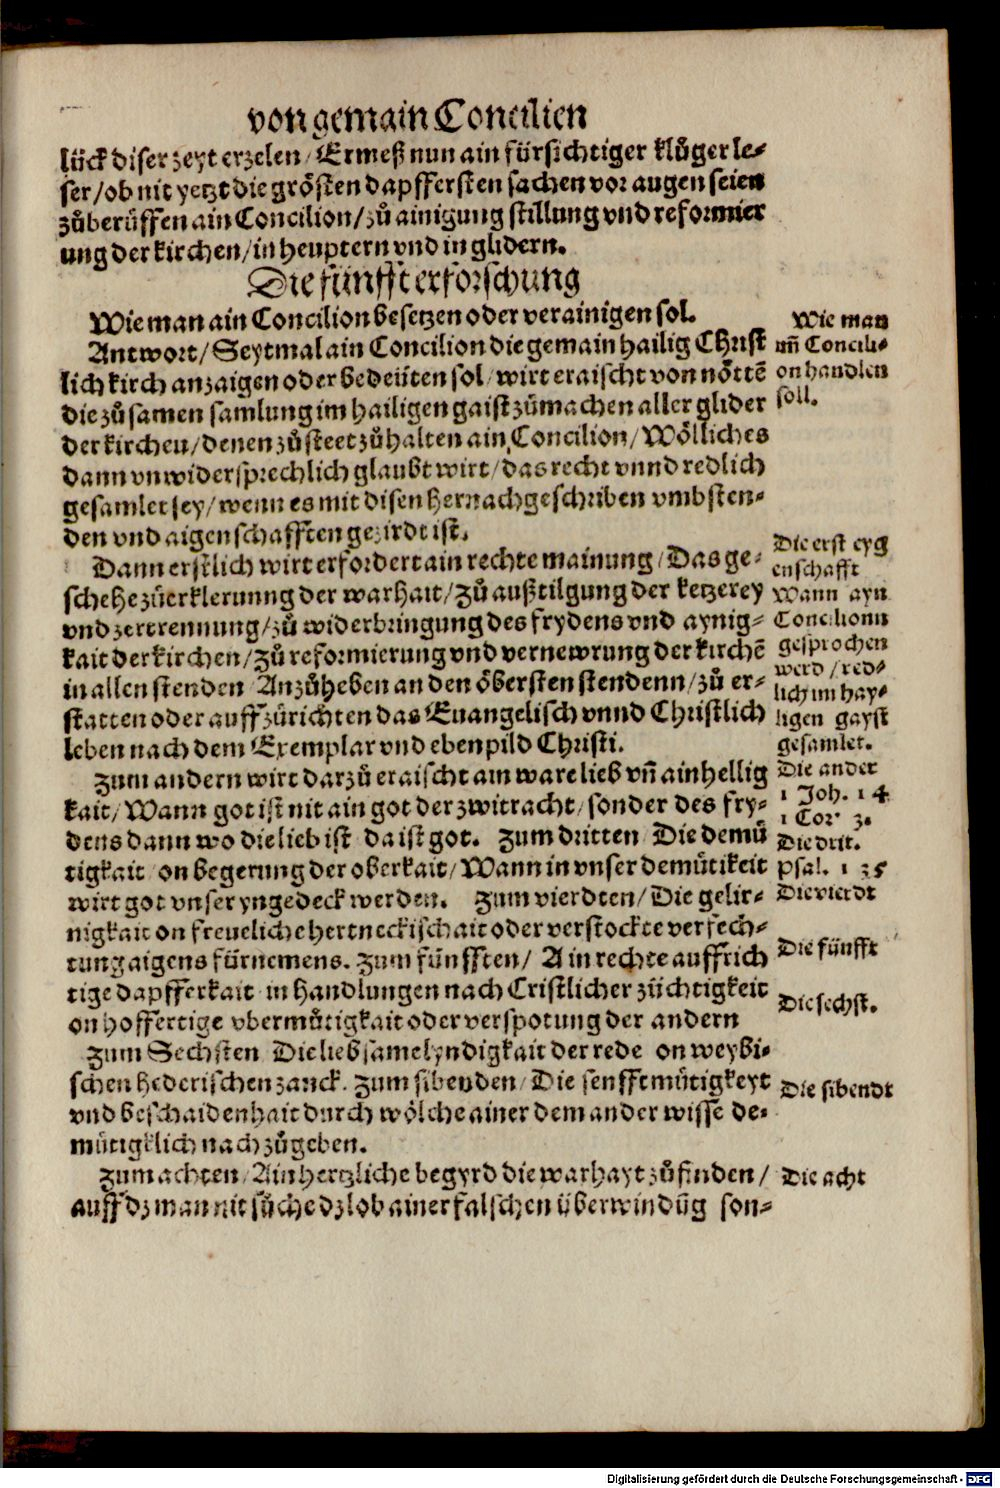 von gemain Concilien
lück diser zeyt erzelen / Ermeß nun ain fürsichtiger klůger le⸗
ser / ob nit yetzt die grösten dapffersten sachen vor augen seien
zůberüffen ain Concilion / zů ainigung stillung vnd reformier
ung der kirchen / in heuptern vnd in glidern.
Die fünfft erforschung
Wie man ain Concilion besetzen oder verainigen sol.
Antwort / Seytmal ain Concilion die gemain hailig Christ
lich kirch anzaigen oder bedeüten sol / wirt eraischt von nöttē
die zůsamen samlung im hailigen gaist zůmachen aller glider
der kirchen / denen zůsteet zůhalten ain Concilion / Wölliches
dann vnwidersprechlich glaubt wirt / das recht vnnd redlich
gesamlet sey / wenn es mit disen hernachgeschriben vmbsten⸗
den vnd aigenschafften gezirdt ist.
Dann erstlich wirt erfordert ain rechte mainung / Das ge⸗
schehe zůerklerunng der warhait / zů außtilgung der ketzerey
vnd zertrennung / zů widerbringung des frydens vnd aynig⸗
kait der kirchen / zů reformierung vnd vernewrung der kirchē
in allen stenden Anzůheben an den öbersten stendenn / zů er⸗
statten oder auffzůrichten das Euangelisch vnnd Christlich
leben nach dem Exemplar vnd ebenpild Christi.
Zum andern wirt darzů eraischt ain ware lieb vñ ainhellig
kait / Wann got ist nit ain got der zwitracht / sonder des fry⸗
dens dann wo die lieb ist da ist got. Zum dritten Die demů
tigkait on begerung der oberkait / Wann in vnser demůtikeit
wirt got vnser yngedeck werden. Zum vierdten / Die gelir⸗
nigkait on freueliche hertneckischait oder verstockte verfech⸗
tung aigens fürnemens. Zum fünfften / Ain rechte auffrich
tige dapfferkait in handlungen nach Cristlicher züchtigkeit
on hoffertige vbermůtigkait oder verspotung der andern
Zum Sechsten Die liebsame lyndigkait der rede on weybi⸗
schen hederischen zanck. Zum sibenden / Die senfftmůtigkeyt
vnd beschaidenhait durch wölche ainer dem ander wisse de⸗
můtigklich nachzůgeben.
Zum achten / Ain hertzliche begyrd die warhayt zůfinden /
auff dz man nit sůche dz lob ainer falschen überwindūg son⸗
Wie man
im̄ Concili⸗
on handlen
soll.
Die erst eyg
enschafft
Wann ayn
Concilionn
gesprochen
werd / red⸗
lich im hay⸗
ligen gayst
gesamlet.
Die ander
1 Joh. 1 4
1 Cor. 3.
Die drit.
Psal. 1 35
Die vierdt
Die fünfft
Die sechst.
Die sibendt
Die acht
Digitalisierung gefördert durch die Deutsche Forschungsgemeinschaft - DFG